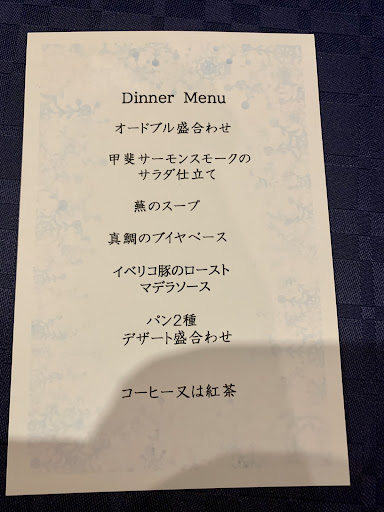 Dinner Menu
オードブル盛合わせ
甲斐サーモンスモークの
サラダ仕立て
蕪のスープ
真鯛のブイヤベース
イベリコ豚のロースト
マデラソース
パン2種
デザート盛合わせ
コーヒー又は紅茶